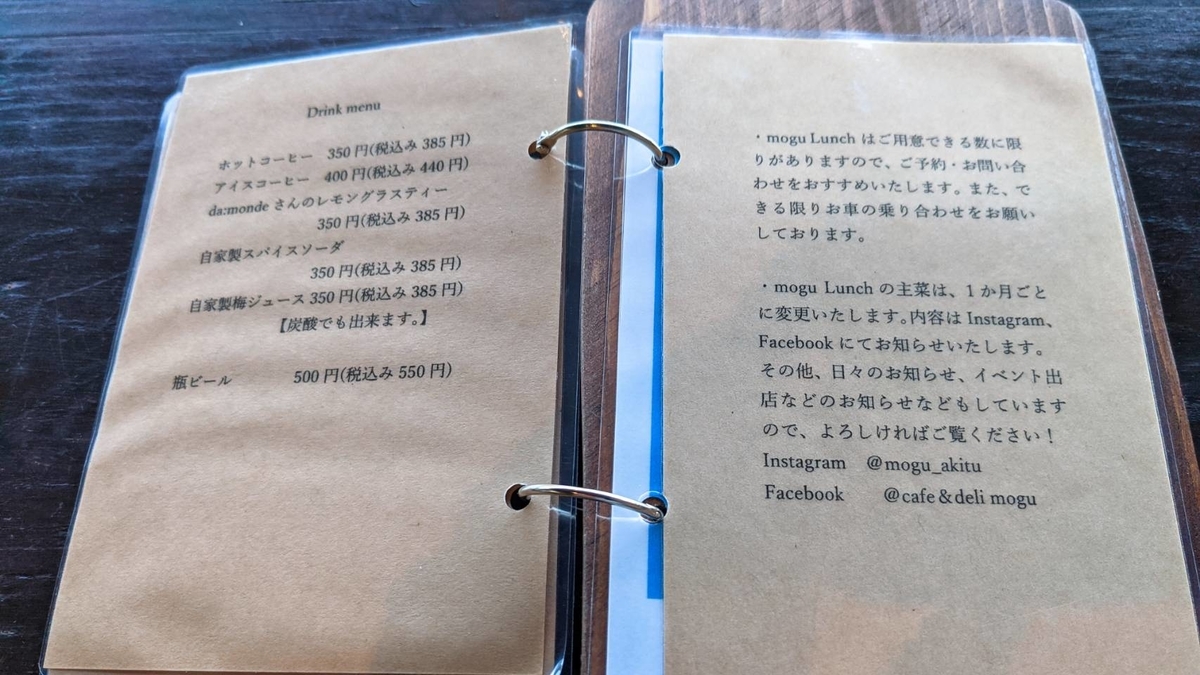 Drink menu
ホットコーヒー 350 円(税込み 385 円)
アイスコーヒー 400 円(税込み 440 円)
da:monde さんのレモングラスティー
350 円(税込み 385 円)
自家製スパイスソーダ
350 円(税込み 385 円)
自家製梅ジュース 350 円(税込み 385 円)
【炭酸でも出来ます。】
瓶ビール 500 円(税込み 550 円)
・mogu Lunch はご用意できる数に限
りがありますので、ご予約・お問い合
わせをおすすめいたします。また、で
きる限りお車の乗り合わせをお願い
しております。
・mogu Lunch の主菜は、1 か月ごと
に変更いたします。内容は Instagram、
Facebook にてお知らせいたします。
その他、日々のお知らせ、イベント出
店などのお知らせなどもしています
ので、よろしければご覧ください！
Instagram @mogu_akitu
Facebook @cafe＆deli mogu